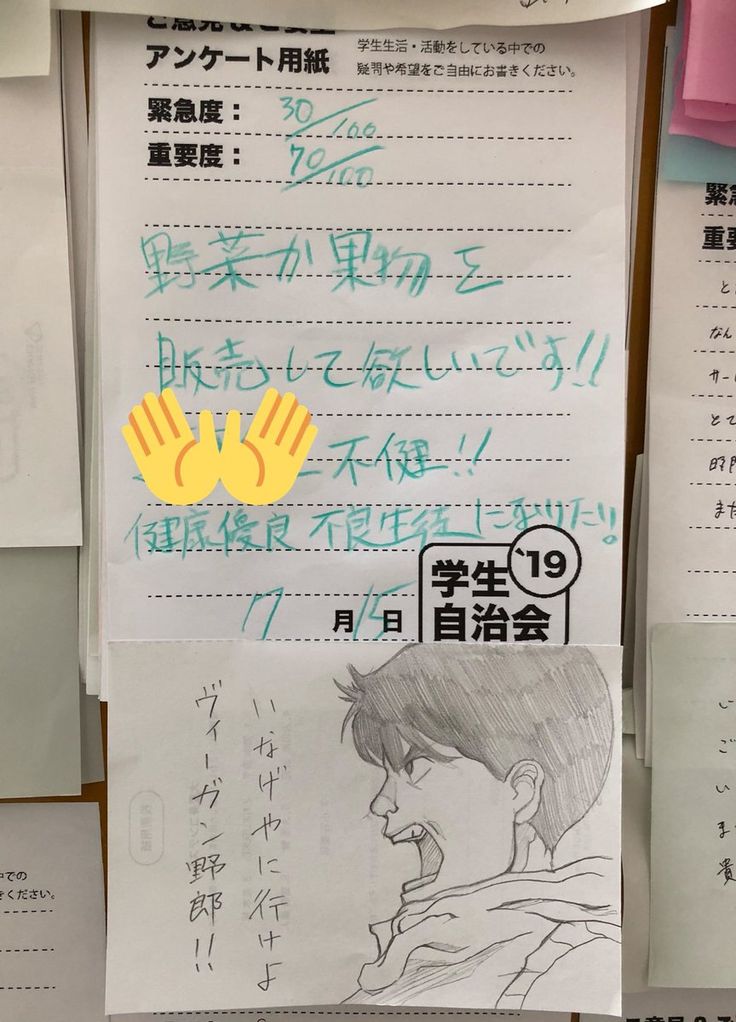 アンケート用紙
学生生活・活動をしている中での
疑問や希望をご自由にお書きください。
緊急度： 30/100
重要度： 70/100
野菜か果物を
販売して欲しいです!!
不健!!
健康優良不良生徒になりたい!
'19
学生
自治会
7月15日
いなげやに行けよ
ヴィーガン野郎!!
緊急
重要
なん
サー
とて
時間
また
中での
きください。
い
ご
い
ま
貴